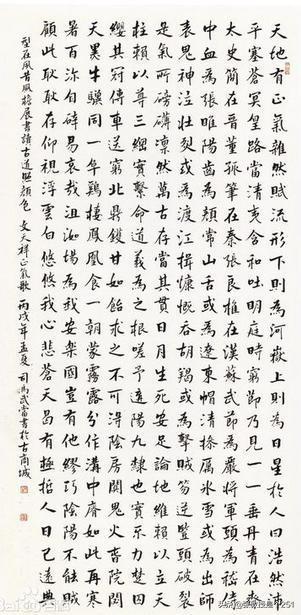 天地有正氣雜然賦流形下則為河嶽上則為日星於人曰浩然沛
乎塞蒼冥皇路當清夷含和吐明庭時窮節乃見一一垂丹青在齊
太史簡在晉董狐筆在秦張良椎在漢蘇武節為嚴將軍頭為嵇侍
中血為張睢陽齒為顏常山舌或為遼東帽清操厲冰雪或為出師
表鬼神泣壯烈或為渡江楫慷慨吞胡羯或為擊賊笏逆豎頭破裂
是氣所磅礴凜然萬古存當其貫日月生死安足論地維賴以立天
柱賴以尊三綱實繫命道義為之根嗟予遘陽九隸也實不力楚囚
纓其冠傳車送窮北鼎鑊甘如飴求之不可得陰房闃鬼火春院閟
天黑牛驥同一皁雞棲鳳凰食一朝蒙霧露分作溝中瘠如此再寒
暑百沴自辟易哀哉沮洳場為我安樂國豈有他繆巧陰陽不能賊
顧此耿耿存仰視浮雲白悠悠我心悲蒼天曷有極哲人日已遠典
型在夙昔風檐展書讀古道照顏色 文天祥正氣歌 丙戌年孟夏 司馬武當書於古商城